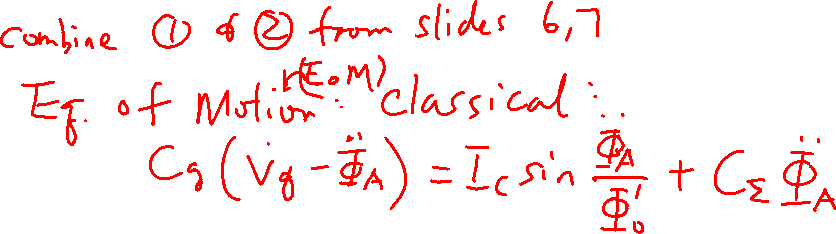 combine ① & ② from slides 6,7
Eq. of Motion (E.o.M) classical:
C_g (V̇_g - Φ̈_A) = I_c sin Φ_A/Φ_0' + C_Σ Φ̈_A